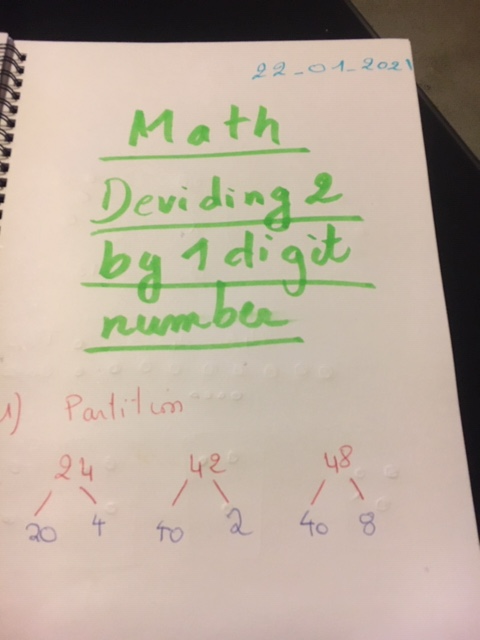 22-01-2021
Math
Deviding 2
by 1 digit
number
1) Partition
24 42 48
20 4 40 2 40 8